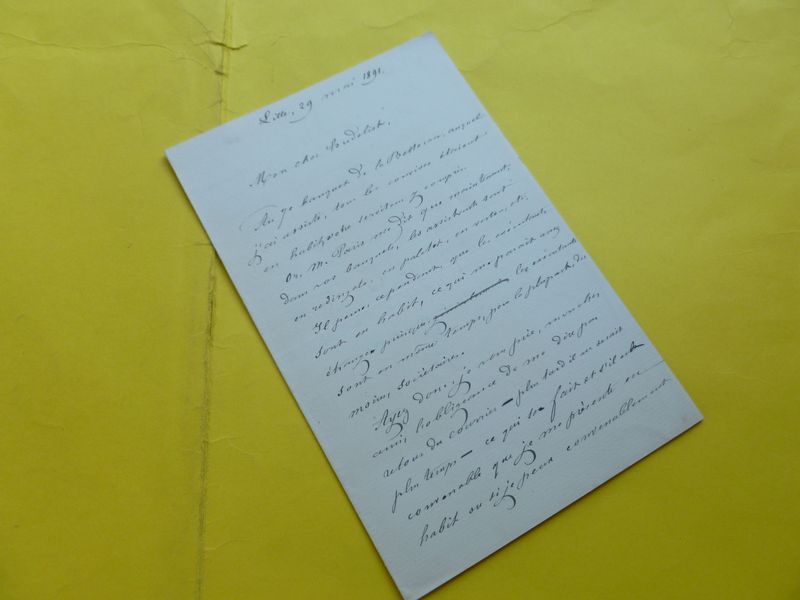 Lille, 29 mai 1891.
Mon cher
Au 90 banquet de la Betterave, auquel
j'ai assisté, tous les convives étaient
en habit, votre serviteur y compris.
Or, M. Paris me dit que maintenant,
dans vos banquets, les assistants sont
en redingote, en paletot, en veston, etc.
Il pense, cependant, que les exécutants
sont en habit, ce qui me paraît assez
étrange puisque les exécutants
sont en même temps, pour la plupart du
moins, sociétaires.
Ayez donc, je vous prie, mon cher
ami, l'obligeance de me dire par
retour du courrier — plus tard il ne serait
plus temps — ce qui se fait et s'il est
convenable que je me présente en
habit ou si je peux convenablement